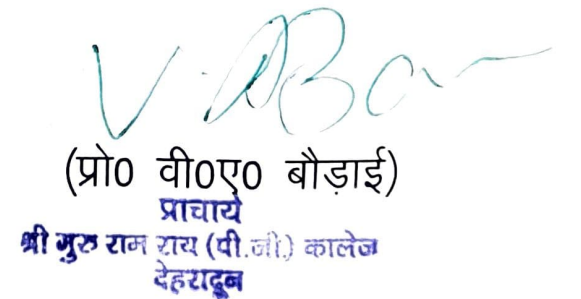 (प्रो0 वी0ए0 बौड़ाई)
प्राचार्य
श्री गुरु राम राय (पी.जी.) कालेज
देहरादून